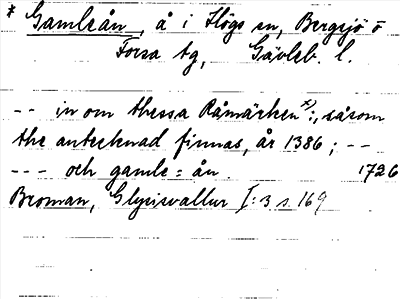 * Gamleån, å i Högs sn, Bergsjö o
Forsa tg, Gävleb. l.
-- in om thessa Råmärken x):, såsom
the antecknad finnas, år 1386; --
--- och gamle = ån. 1726
Broman, Glysisvallur I:3 s. 169